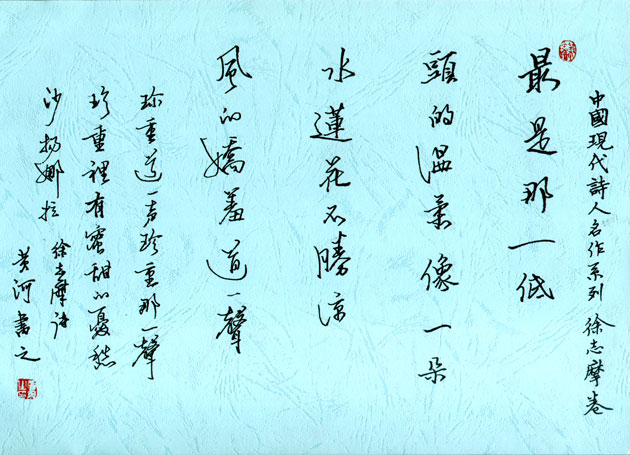 中國現代詩人名作系列 徐志摩卷
最是那一低
頭的温柔像一朵
水蓮花不勝凉
風的嬌羞道一聲
珍重道一声珍重那一聲
珍重裡有蜜甜的憂愁
沙揚娜拉 徐志摩诗
黄河書之